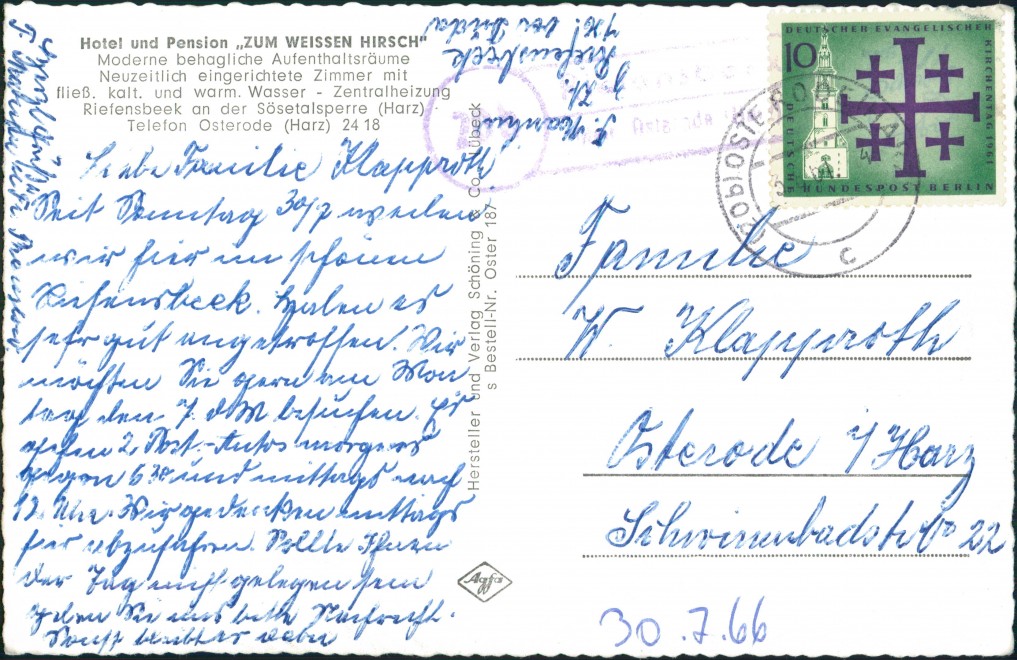 Hotel und Pension „ZUM WEISSEN HIRSCH"
Moderne behagliche Aufenthaltsräume
Neuzeitlich eingerichtete Zimmer mit
fließ. kalt. und warm. Wasser - Zentralheizung
Riefensbeek an der Sösetalsperre (Harz)
Telefon Osterode (Harz) 24 18
Liebe Familie Klapproth!
Seit Sonntag 30/7 weilen
wir hier im schönen
Riefensbeek. Haben es
sehr gut angetroffen. Wir
möchten Sie gern am Mon
tag den 7. d M besuchen. Es
gehen 2 Post-Autos morgens
gegen 6 30 und mittags nach
12 Uhr. Wir gedenken mittags
hier abzufahren. Sollte Ihnen
der Tag nicht gelegen sein
geben Sie uns bitte Nachricht.
Sonst bleibt es dabei
Riefensbeek
Hersteller und Verlag Schöning & Co., Lübeck
s Bestell-Nr. Oster 187
Agfa
DEUTSCHER EVANGELISCHER
KIRCHENTAG 1961
10
DEUTSCHE
BUNDESPOST BERLIN
(20b) OSTERODE (HARZ)
c
Familie
W. Klapproth
Osterode i/Harz
Schwimmbadstr. 22
30.7.66